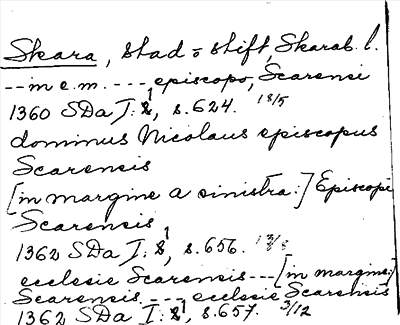 Skara, stad o stift, Skarab. l.
-- in e.m. ---, episcopo, Scarensi
1360 SDa I: 2, s. 624. 18/5
dominus Nicolaus episcopus
Scarensis
[in margine a sinistra:] Episcopi
Scarensis,
1362 SDa I: 2, s. 656.
ecclesie Scarensis --- [in margine:]
Scarensis --- ecclesie Scarensis
1362 SDa I: 2, s. 657. 3/12